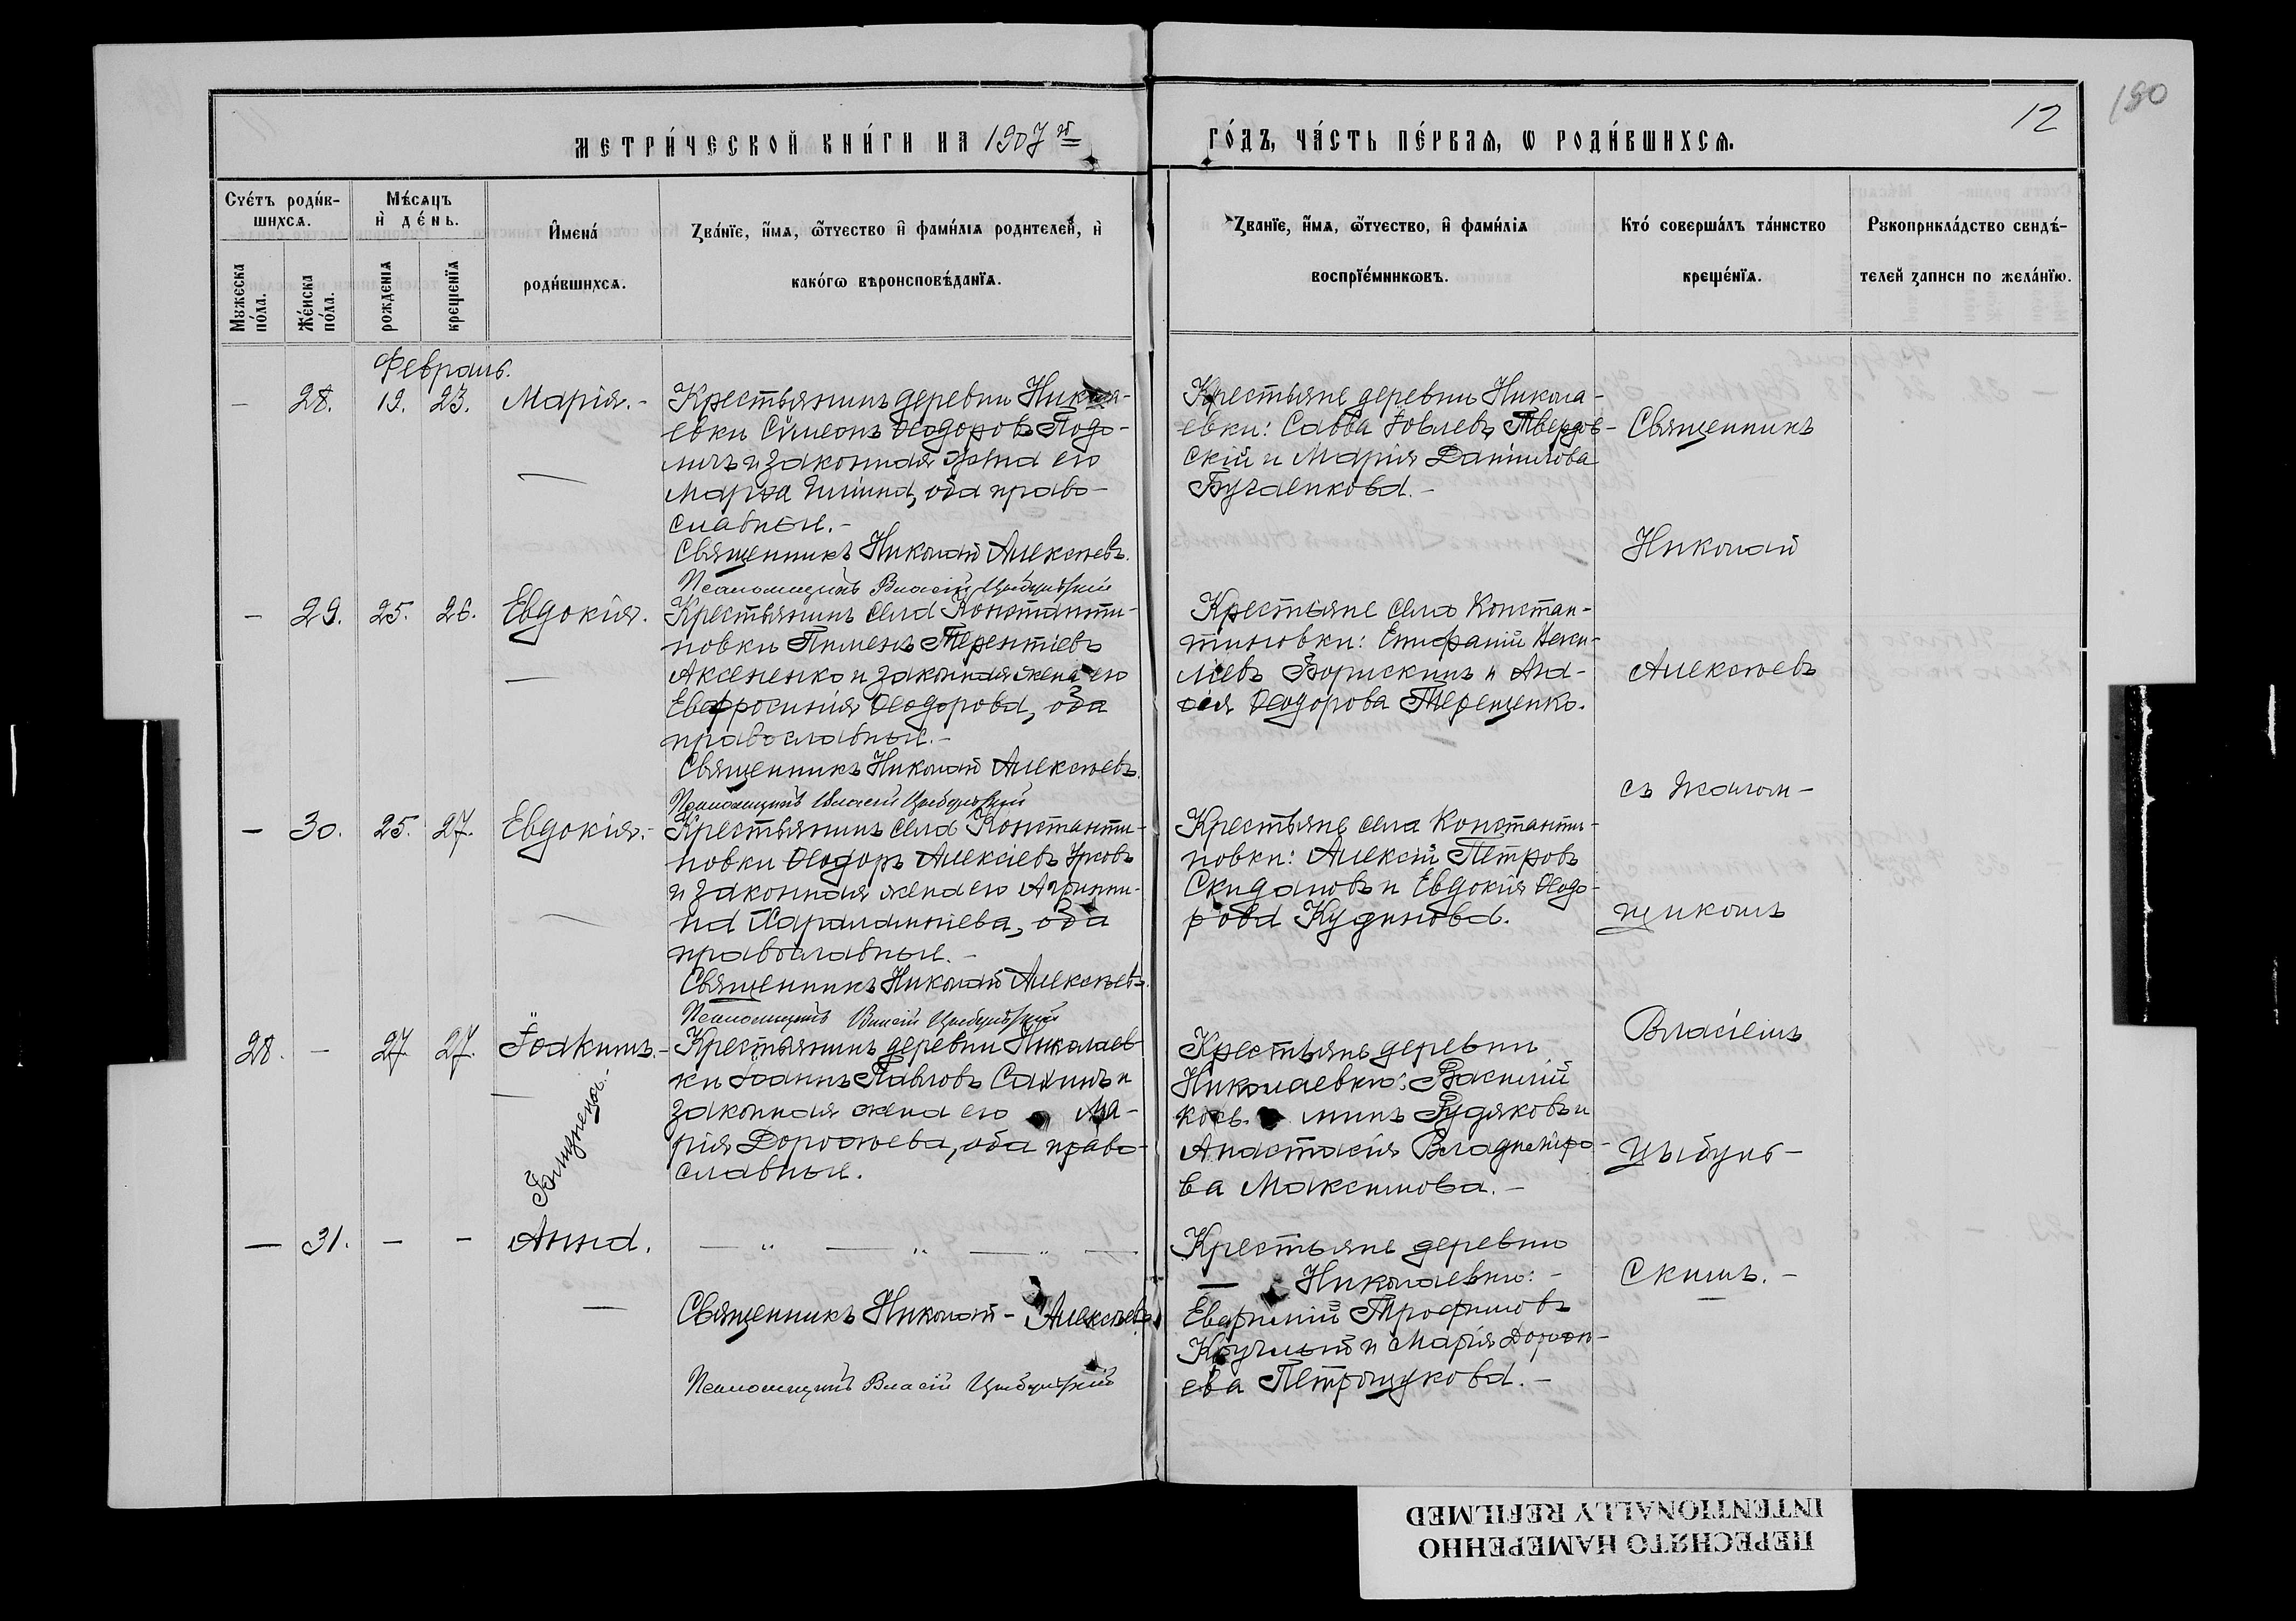 метри́ческой кни́ги на 1907 й
го́дъ, ча́сть пе́рваѧ, ѡ роди́вшихсѧ.
12
190
Сче́тъ роди́в-
шихсѧ.
Мужеска по́ла.
Же́нска по́ла.
Мѣ́сѧцъ
и҆ де́нь.
рожденїѧ
крещенїѧ
И҆мена́
роди́вшихсѧ.
Зва́нїе, и҆́мѧ, ѻ҆́тчество и҆ фами́лїѧ родителей, и҆
како́гѡ вѣроисповѣ́данїѧ.
Зва́нїе, и҆́мѧ, ѻ҆́тчество, и҆ фами́лїѧ
воспрїе́мниковъ.
Кто́ соверша́лъ та́инство
креще́нїѧ.
Рукоприкла́дство свидѣ́-
телей записи по жела́нїю.
Февраль.
– 28. 19. 23. Марія.–
Крестьянинъ деревни Никола-
евки Симеонъ Ѳеодоровъ Подо-
личъ и законная жена его
Марѳа Ильина, оба право-
славные.–
Священникъ Николай Алексѣевъ.
Псаломщикъ Власій Цыбульскій
Крестьяне деревни Никола-
евки: Савва Іовлевъ Твердов-
скій и Марія Даніилова
Бугаенкова.–
– 29. 25. 26. Евдокія.
Крестьянинъ села Константи-
новки Пименъ Терентіевъ
Аксененко и законная жена его
Евфросинія Ѳеодорова, оба
православные.–
Священникъ Николай Алексѣевъ.
Псаломщикъ Власій Цыбульскій
Крестьяне села Констан-
тиновки: Епифаній
Борискинъ и Ага-
ѳія Ѳеодорова Терещенко.
– 30. 25. 27. Евдокія.–
Крестьянинъ села Константи-
новки Ѳеодоръ Алексіевъ
и законная жена его Агриппи-
на Харалампіева, оба
православные.–
Священникъ Николай Алексѣевъ.
Псаломщикъ Власій Цыбульскій
Крестьяне села Константи-
новки: Алексій Петровъ
Скидановъ и Евдокія Ѳеодо-
рова Кудинова.
28. – 27. 27. Іоакимъ.–
Близнецы.–
Крестьянинъ деревни Николаев-
ки Іоаннъ Павловъ и
законная жена его Ма-
рія Дороѳеева, оба право-
славные.
Крестьяне деревни
Николаевки: Василій
Рудяковъ и
Анастасія Владиміро-
ва Максимова.–
– 31. – – Анна.
— " — " — " —
Священникъ Николай – Алексѣевъ
Псаломщикъ Власій Цыбульскій
Крестьяне деревни
— Николаевки:–
Трофимовъ
и Марія Дороѳ-
еева Петрощукова.–
Священникъ
Николай
Алексѣевъ
съ Псалом-
щикомъ
Власіемъ
Цыбуль-
скимъ.–
ПЕРЕСНЯТО НАМЕРЕННО
INTENTIONALLY REFILMED